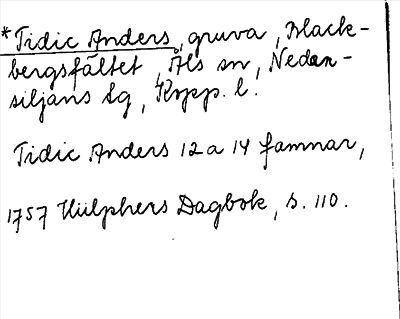 *Tidic Anders, gruva, Black-
bergsfältet, Åls sn, Nedan-
siljans tg, Kopp. l.
Tidic Anders 12 a 14 famnar,
1757 Hülphers Dagbok, s. 110.